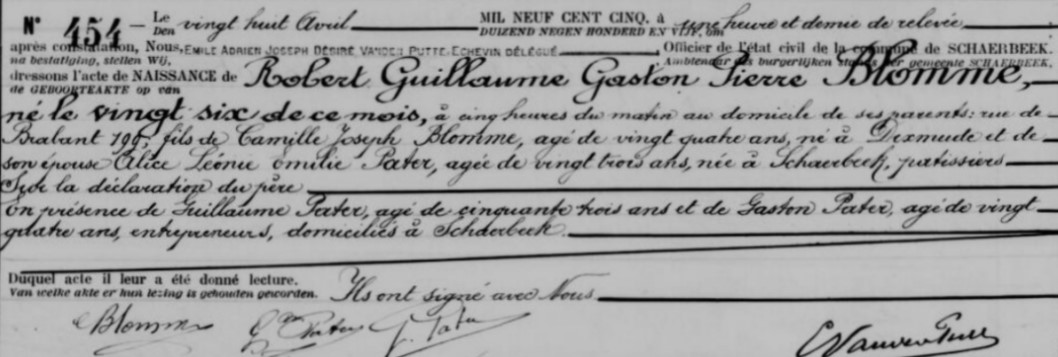 N° 454 — Le vingt huit Avril MIL NEUF CENT CINQ, à une heure et demie de relevée
Den DUIZEND NEGEN HONDERD EN VIJF, om
après constatation, Nous, EMILE ADRIEN JOSEPH DÉSIRÉ VANDEN PUTTE, ECHEVIN DÉLÉGUÉ Officier de l'état civil de la commune de SCHAERBEEK,
na bestatiging, stellen Wij, Ambtenaar des burgerlijken stands der gemeente SCHAERBEEK,
dressons l'acte de NAISSANCE de Robert Guillaume Gaston Pierre Blomme,
de GEBOORTEAKTE op van
né le vingt six de ce mois, à cinq heures du matin au domicile de ses parents: rue de
Brabant 196, fils de Camille Joseph Blomme, agé de vingt quatre ans, né à Dixmude et de
son épouse Alice Léonie Emélie Pater, agée de vingt trois ans, née à Schaerbeek, patissiers
Sur la déclaration du père
En présence de Guillaume Pater, agé de cinquante trois ans et de Gaston Pater, agé de vingt
quatre ans, entrepreneurs, domiciliés à Schaerbeek.
Duquel acte il leur a été donné lecture.
Van welke akte er hun lezing is gehouden geworden. Ils ont signé avec Nous
Blomme G Pater G. Pater
E Vanden Putte